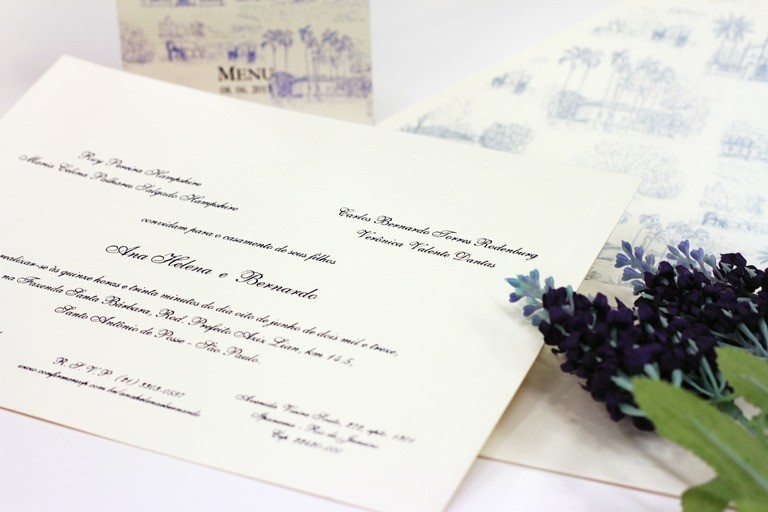 MENU
08. 06. 2013
Ruy Pereira Hampshire
Maria Celina Palhares Salgado Hampshire
Carlos Bernardo Torres Rodenburg
Verônica Valente Dantas
convidam para o casamento de seus filhos
Ana Helena e Bernardo
realizar-se às quinze horas e trinta minutos do dia oito de junho de dois mil e treze,
na Fazenda Santa Bárbara, Rod. Prefeito Aziz Lian, km 14,5,
Santo Antônio de Posse - São Paulo.
R. S. V. P. (21)
Avenida Vieira Souto,
Ipanema - Rio de Janeiro
Cep